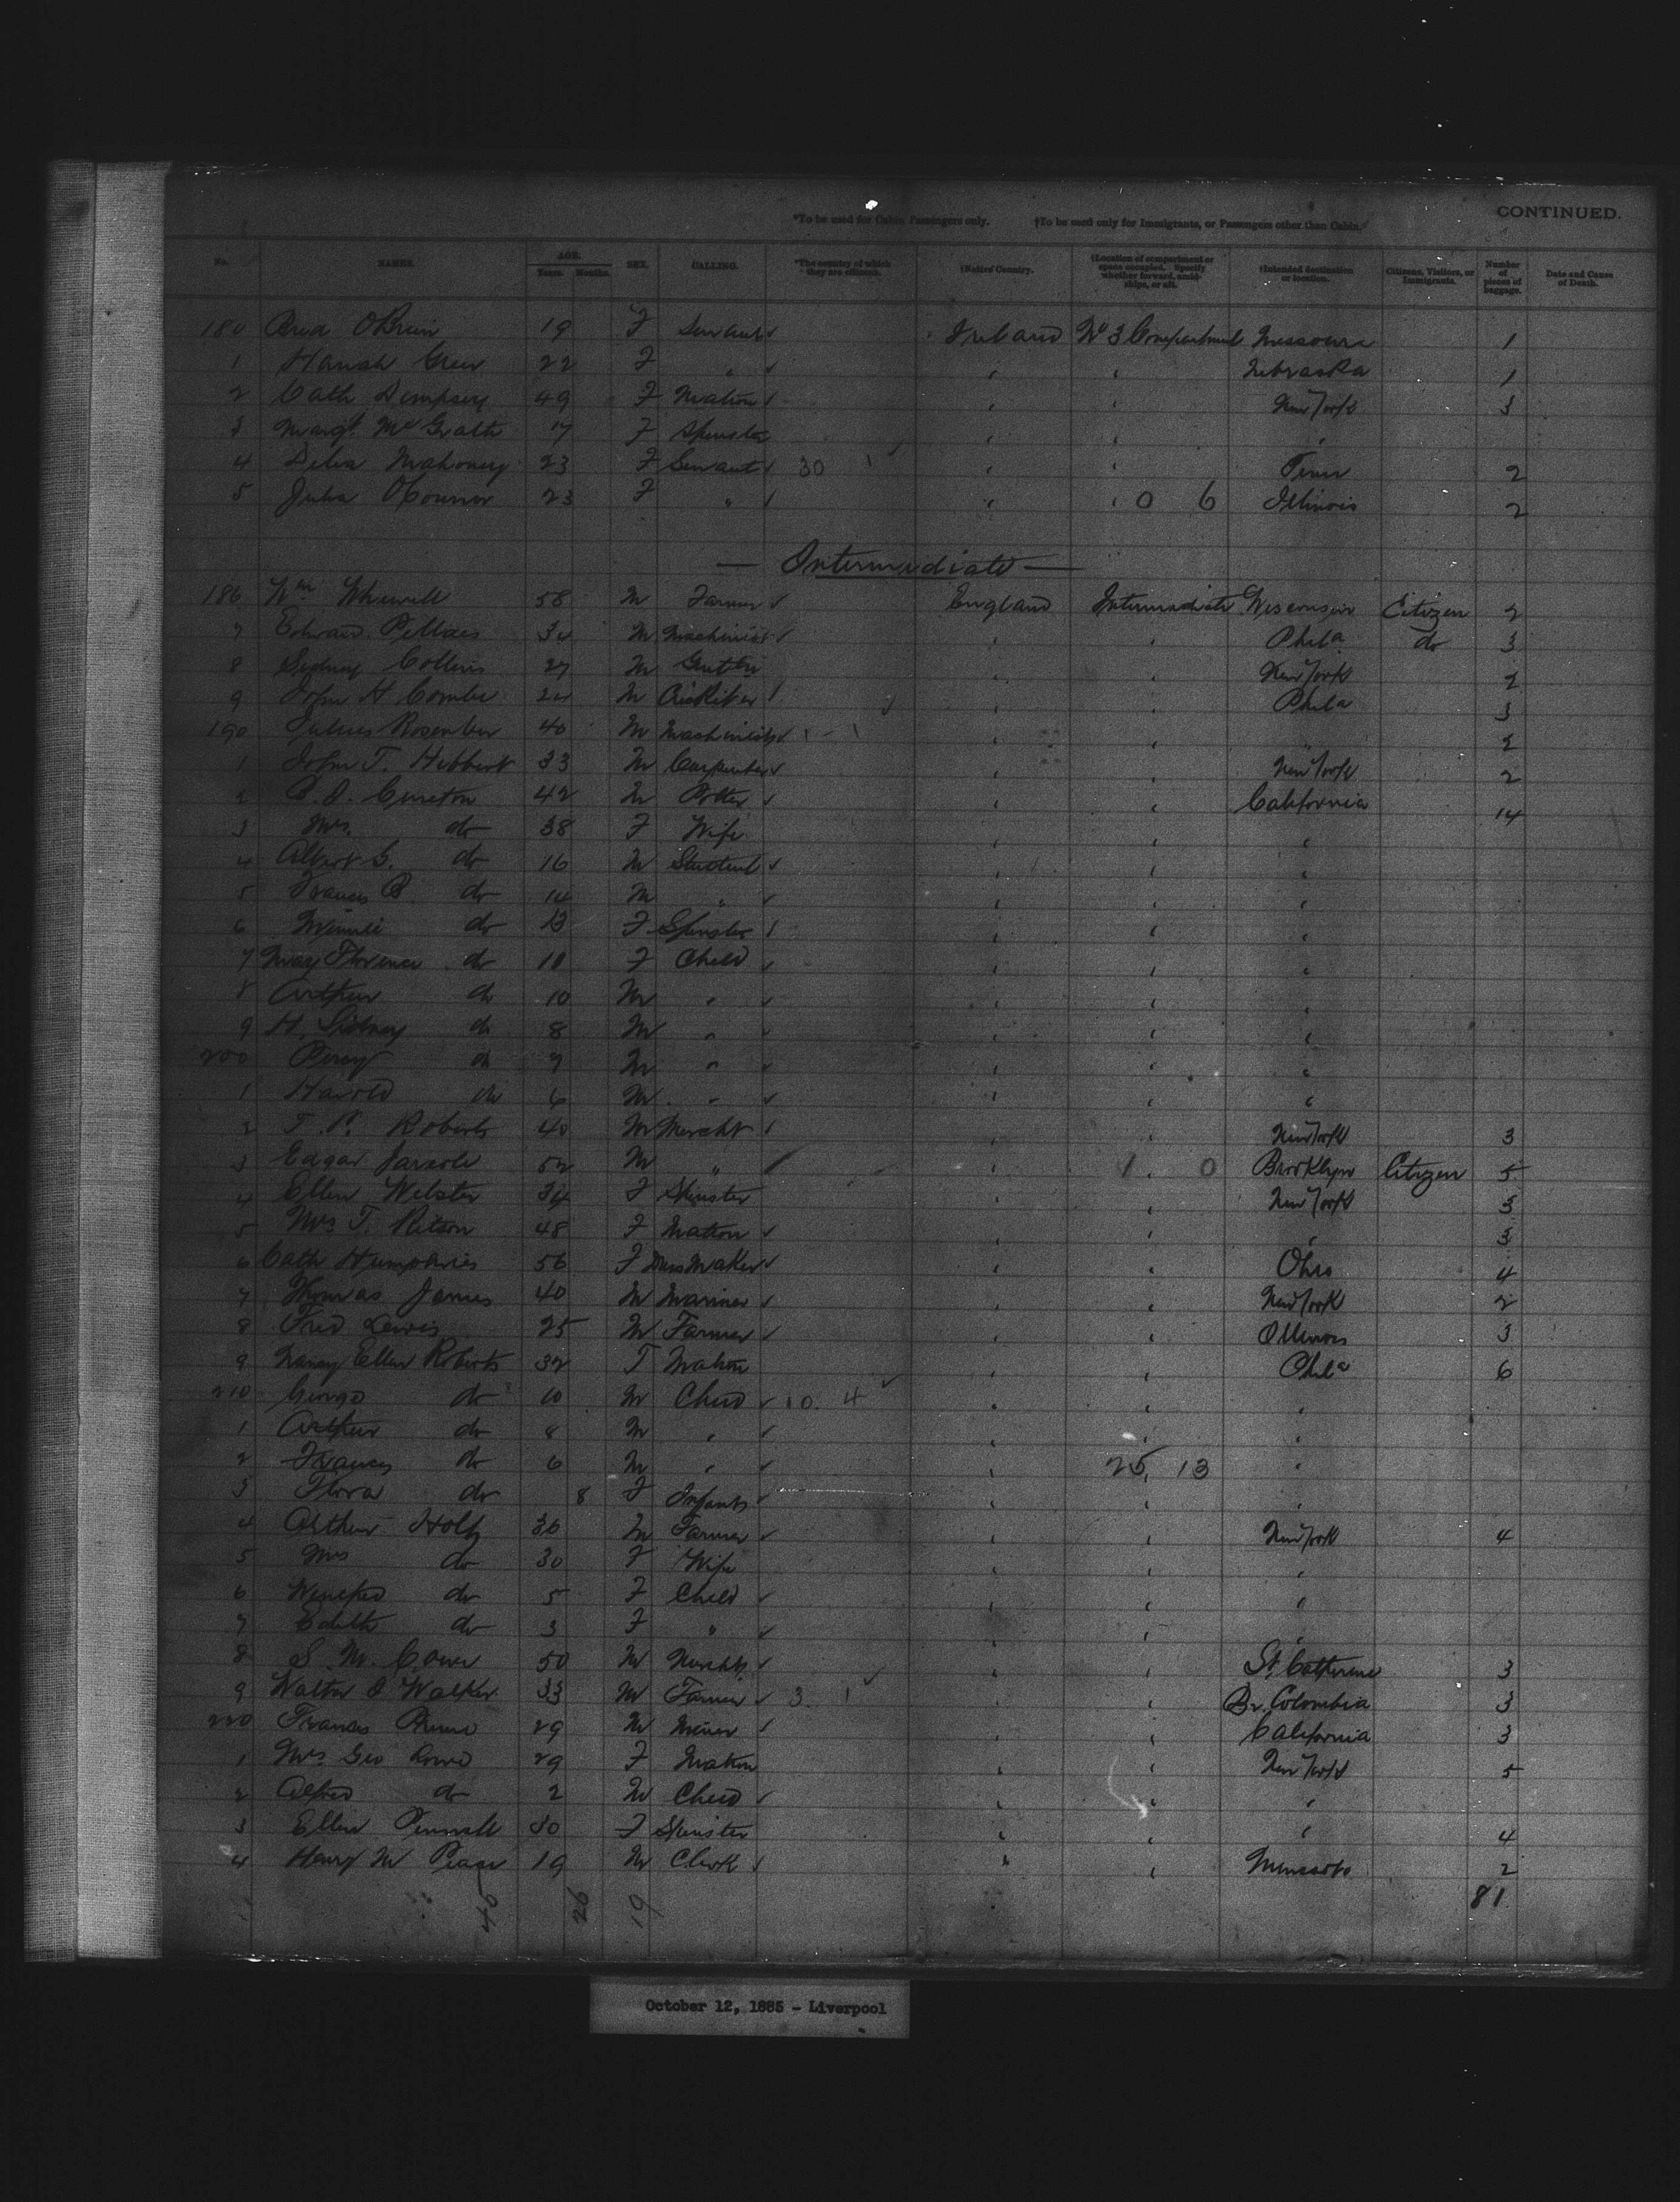 CONTINUED.
*To be used for Cabin Passengers only. †To be used only for Immigrants, or Passengers other than Cabin.
No. NAMES. AGE. Years. Months. SEX. CALLING. *The country of which they are citizens. †Native Country. †Location of compartment or space occupied. Specify whether forward, amidships, or aft. †Intended destination or location. Citizens, Visitors, or Immigrants. Number of pieces of baggage. Date and Cause of Death.
180 OBrien 19 F Servant Ireland No 3 Compartment Missouri 1
1 Hanah 22 F " ' ' Nebraska 1
2 Cath Dempsey 49 F Matron ' ' New York 3
3 Margt McGrath 17 F Spinster ' ' '
4 Delia Mahoney 23 F Servant 30 1 ' ' Penn 2
5 Julia OConnor 23 F " ' ' 0 6 Illinois 2
— Intermediate —
186 Wm Whewell 58 M Farmer England Intermediate Wisconsin Citizen 2
7 Edward 34 M Machinist ' ' Phila do 3
8 Sidney Collins 27 M ' ' New York 2
9 John H Combe M ' ' Phila 3
190 Julius 40 M Machinist ' ' " 2
1 John T. Hibbert 33 M Carpenter ' ' New York 2
2 Cureton 42 M Potter ' ' California 14
3 Mrs. do 38 F Wife ' ' '
4 Albert G. do 16 M Student ' ' '
5 Francis B. do 14 M " ' ' '
6 Minnie do 13 F Spinster ' ' '
7 May Florence do 11 F Child ' ' '
8 Arthur do 10 M " ' ' '
9 H. Sidney do 8 M " ' ' '
200 Percy do 7 M " ' ' '
1 Harold do 6 M " ' ' '
2 T. P. Roberts 40 M Mercht ' ' New York 3
3 Edgar 52 M " ' 1 0 Brooklyn Citizen 5
4 Ellen Webster 34 F Spinster ' ' New York 3
5 Mrs T. Ritson 48 F Matron ' ' ' 3
6 Cath Humphries 56 F Dress Maker ' ' Ohio 4
7 Thomas James 40 M Mariner ' ' New York 2
8 Fred Lewis 25 M Farmer ' ' Illinois 3
9 Nancy Ellen Roberts 32 F Matron ' ' Phila 6
210 George do 10 M Child 10. 4 ' ' '
1 Arthur do 8 M " ' ' '
2 Francis do 6 M " ' 25 13 '
3 Flora do 8 F Infant ' ' '
4 Arthur Holt 36 M Farmer ' ' New York 4
5 Mrs do 30 F Wife ' ' '
6 Winifred do 5 F Child ' ' '
7 Edith do 3 F " ' ' '
8 S. M. 50 M Mercht ' ' St. Catherine 3
9 Walter J Walker 33 M Farmer 3. 1 ' ' Br. Colombia 3
220 Francis 29 M Miner ' ' California 3
1 Mrs Geo 29 F Matron ' ' New York 5
2 Alfred do 2 M Child ' ' '
3 Ellen 30 F Spinster ' ' ' 4
4 Henry M Pease 19 M Clerk ' ' 2
26 19 81
October 12, 1885 - Liverpool